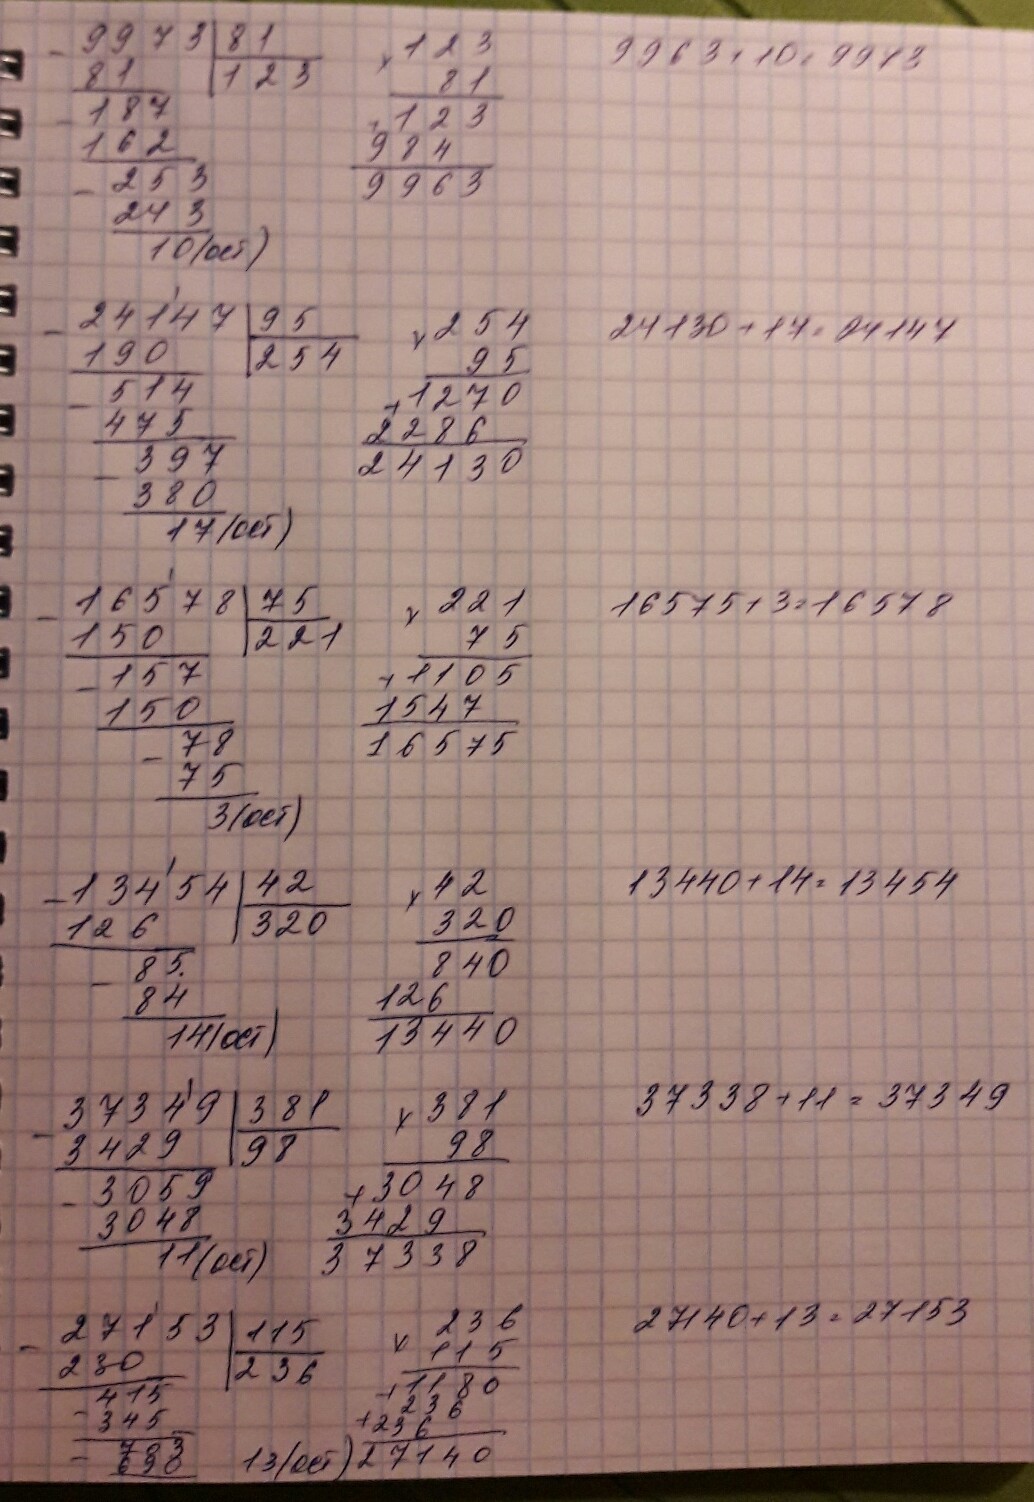 - 9973 | 81 × 123 9963 + 10 = 9973
81 | 123 81
- 187 + 123
162 984
- 253 9963
243
10(ост)
- 24147 | 95 × 254 24130 + 17 = 24147
190 | 254 95
- 514 + 1270
475 2286
- 397 24130
380
17(ост)
- 16578 | 75 × 221 16575 + 3 = 16578
150 | 221 75
- 157 + 1105
150 1547
- 78 16575
75
3(ост)
- 13454 | 42 × 42 13440 + 14 = 13454
126 | 320 320
- 85 840
84 126
14(ост) 13440
- 37349 | 381 × 381 37338 + 11 = 37349
3429 | 98 98
- 3059 + 3048
3048 3429
11(ост) 37338
- 27153 | 115 × 236 27140 + 13 = 27153
230 | 236 115
- 415 + 1180
345 + 236
236
- 703 13(ост) 27140
690